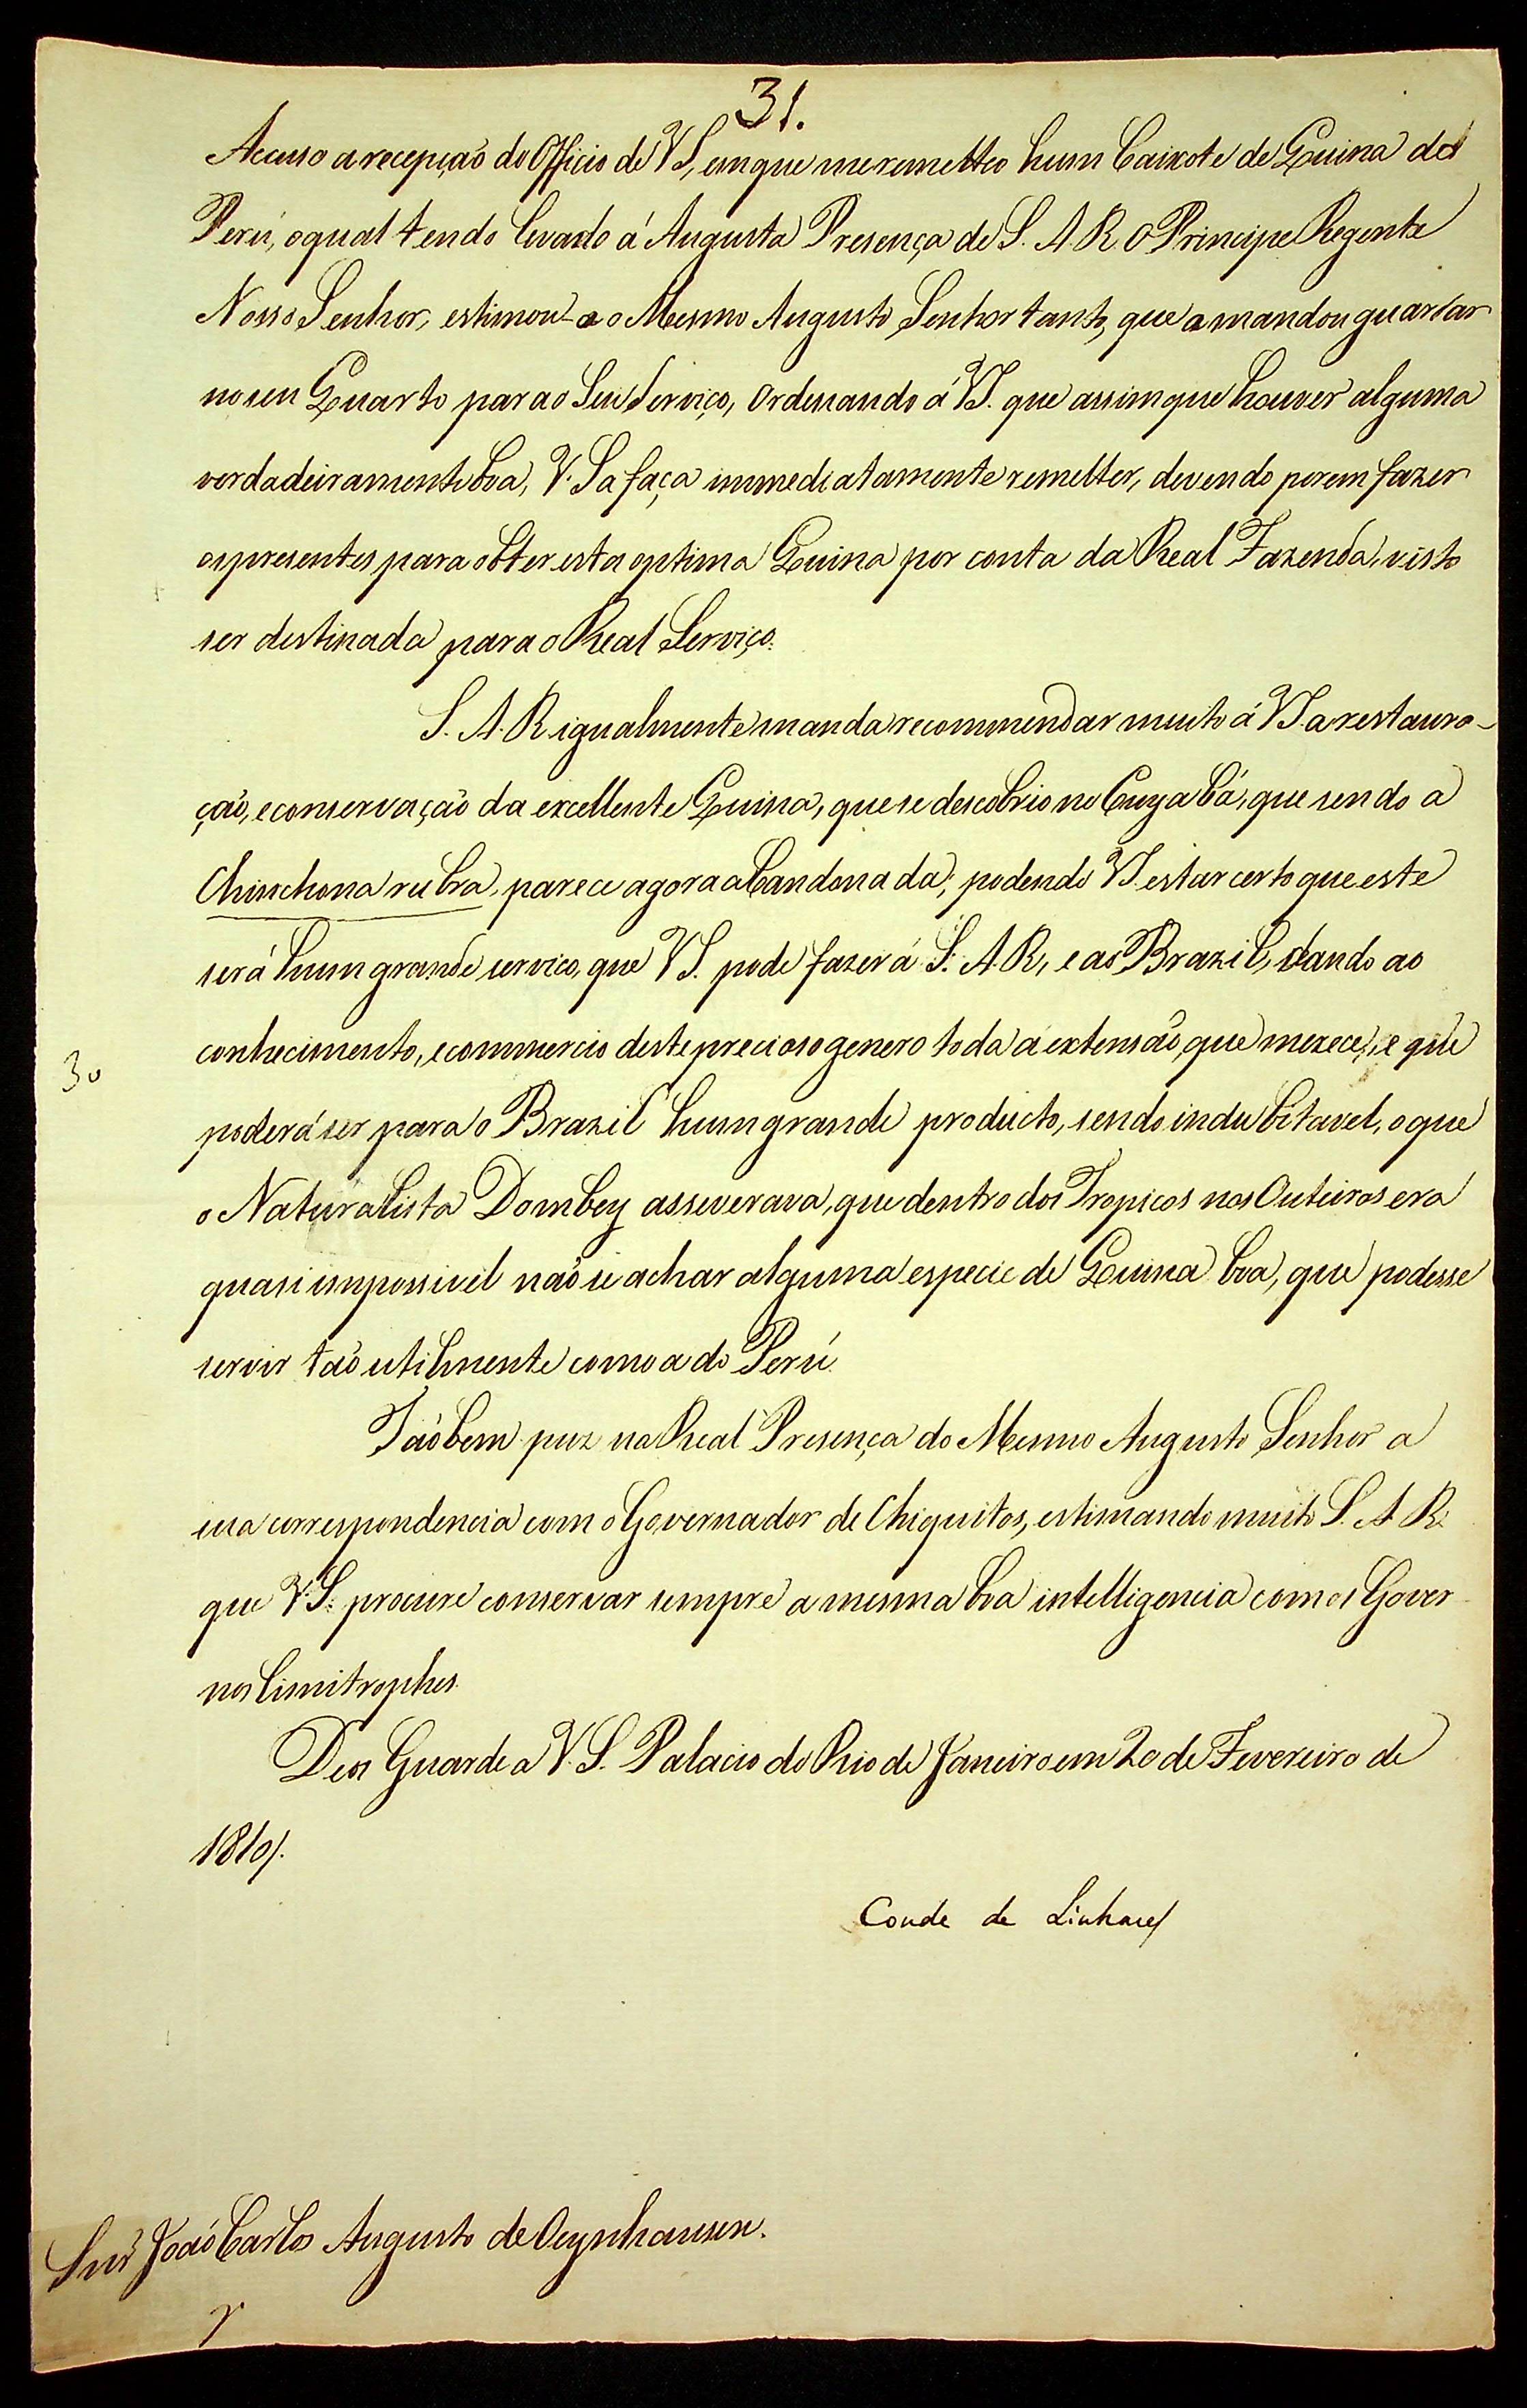 31.
Accuso a recepção do Officio de VS, em que me remetteo hum Caixote de Quina do
Perú, o qual tendo levado á Augusta Presença de S. A. R. O Principe Regente
Nosso Senhor, estimou-a o Mesmo Augusto Senhor tanto, que a mandou guardar
no seu Quarto para o Seu Serviço, Ordenando á VS. que assim que houver alguma
verdadeiramente boa, V. S a faça immediatamente remetter, devendo porem fazer
os presentes para obter esta optima Quina por conta da Real Fazenda, visto
ser destinada para o Real Serviço.
S. A. R igualmente manda recommendar muito á VS. a restaura-
ção, e conservação da excellente Quina, que se descobrio no Cuyabá, que sendo a
Chinchona rubra, parece agora abandonada; podendo VS. estar certo que este
será hum grande serviço, que VS. pode fazer á S. A. R, e ao Brazil, dando ao
conhecimento, e commercio deste precioso genero toda a extensão, que merece, e que
30
poderá ser para o Brazil hum grande producto, sendo indubitavel, o que
o Naturalista Dombey asseverava, que dentro dos Tropicos nos Outeiros era
quasi impossivel não se achar alguma especie de Quina boa, que podesse
servir tão utilmente como a do Perú.
Tãobem puz na Real Presença do Mesmo Augusto Senhor a
sua correspondencia com o Governador de Chiquitos, estimando muito S. A R.
que V. S. procure conservar sempre a mesma boa intelligencia com os Gover
nos limitrophes.
Deos Guarde a V. S. Palacio do Rio de Janeiro em 20 de Fevereiro de
1810/.
Conde de Linhares
Snr João Carlos Augusto de Oeynhausen.